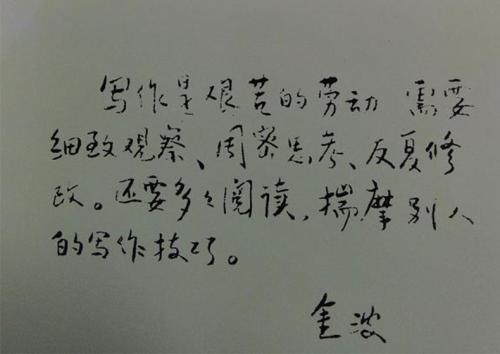 写作是艰苦的劳动 需要
细致观察、周密思考、反复修
改。还要多々阅读,揣摩别人
的写作技巧。
金波